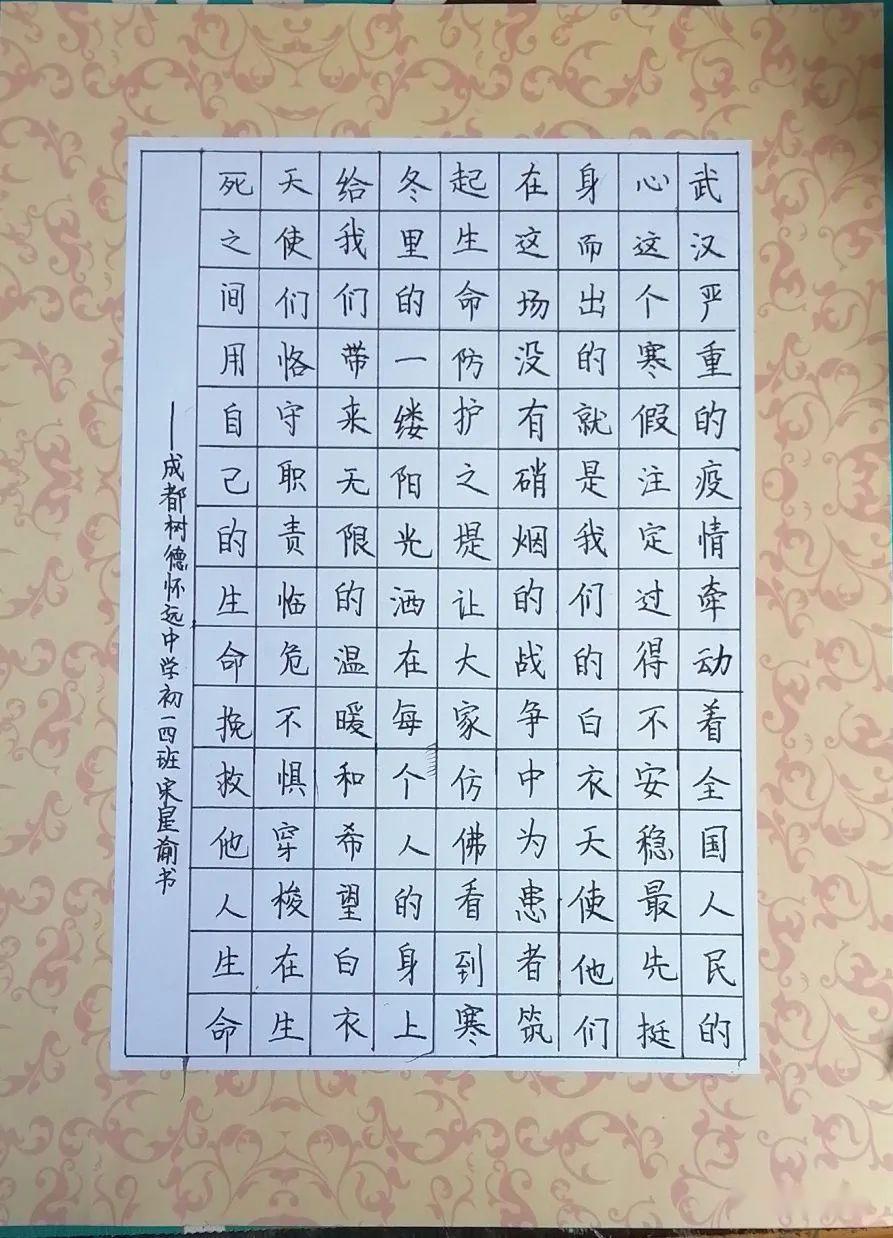 武汉严重的疫情牵动着全国人民的
心这个寒假注定过得不安稳最先挺
身而出的就是我们的白衣天使他们
在这场没有硝烟的战争中为患者筑
起生命防护之堤让大家仿佛看到寒
冬里的一缕阳光洒在每个人的身上
给我们带来无限的温暖和希望白衣
天使们恪守职责临危不惧穿梭在生
死之间用自己的生命挽救他人生命
——成都树德怀远中学初一四班宋星谕书